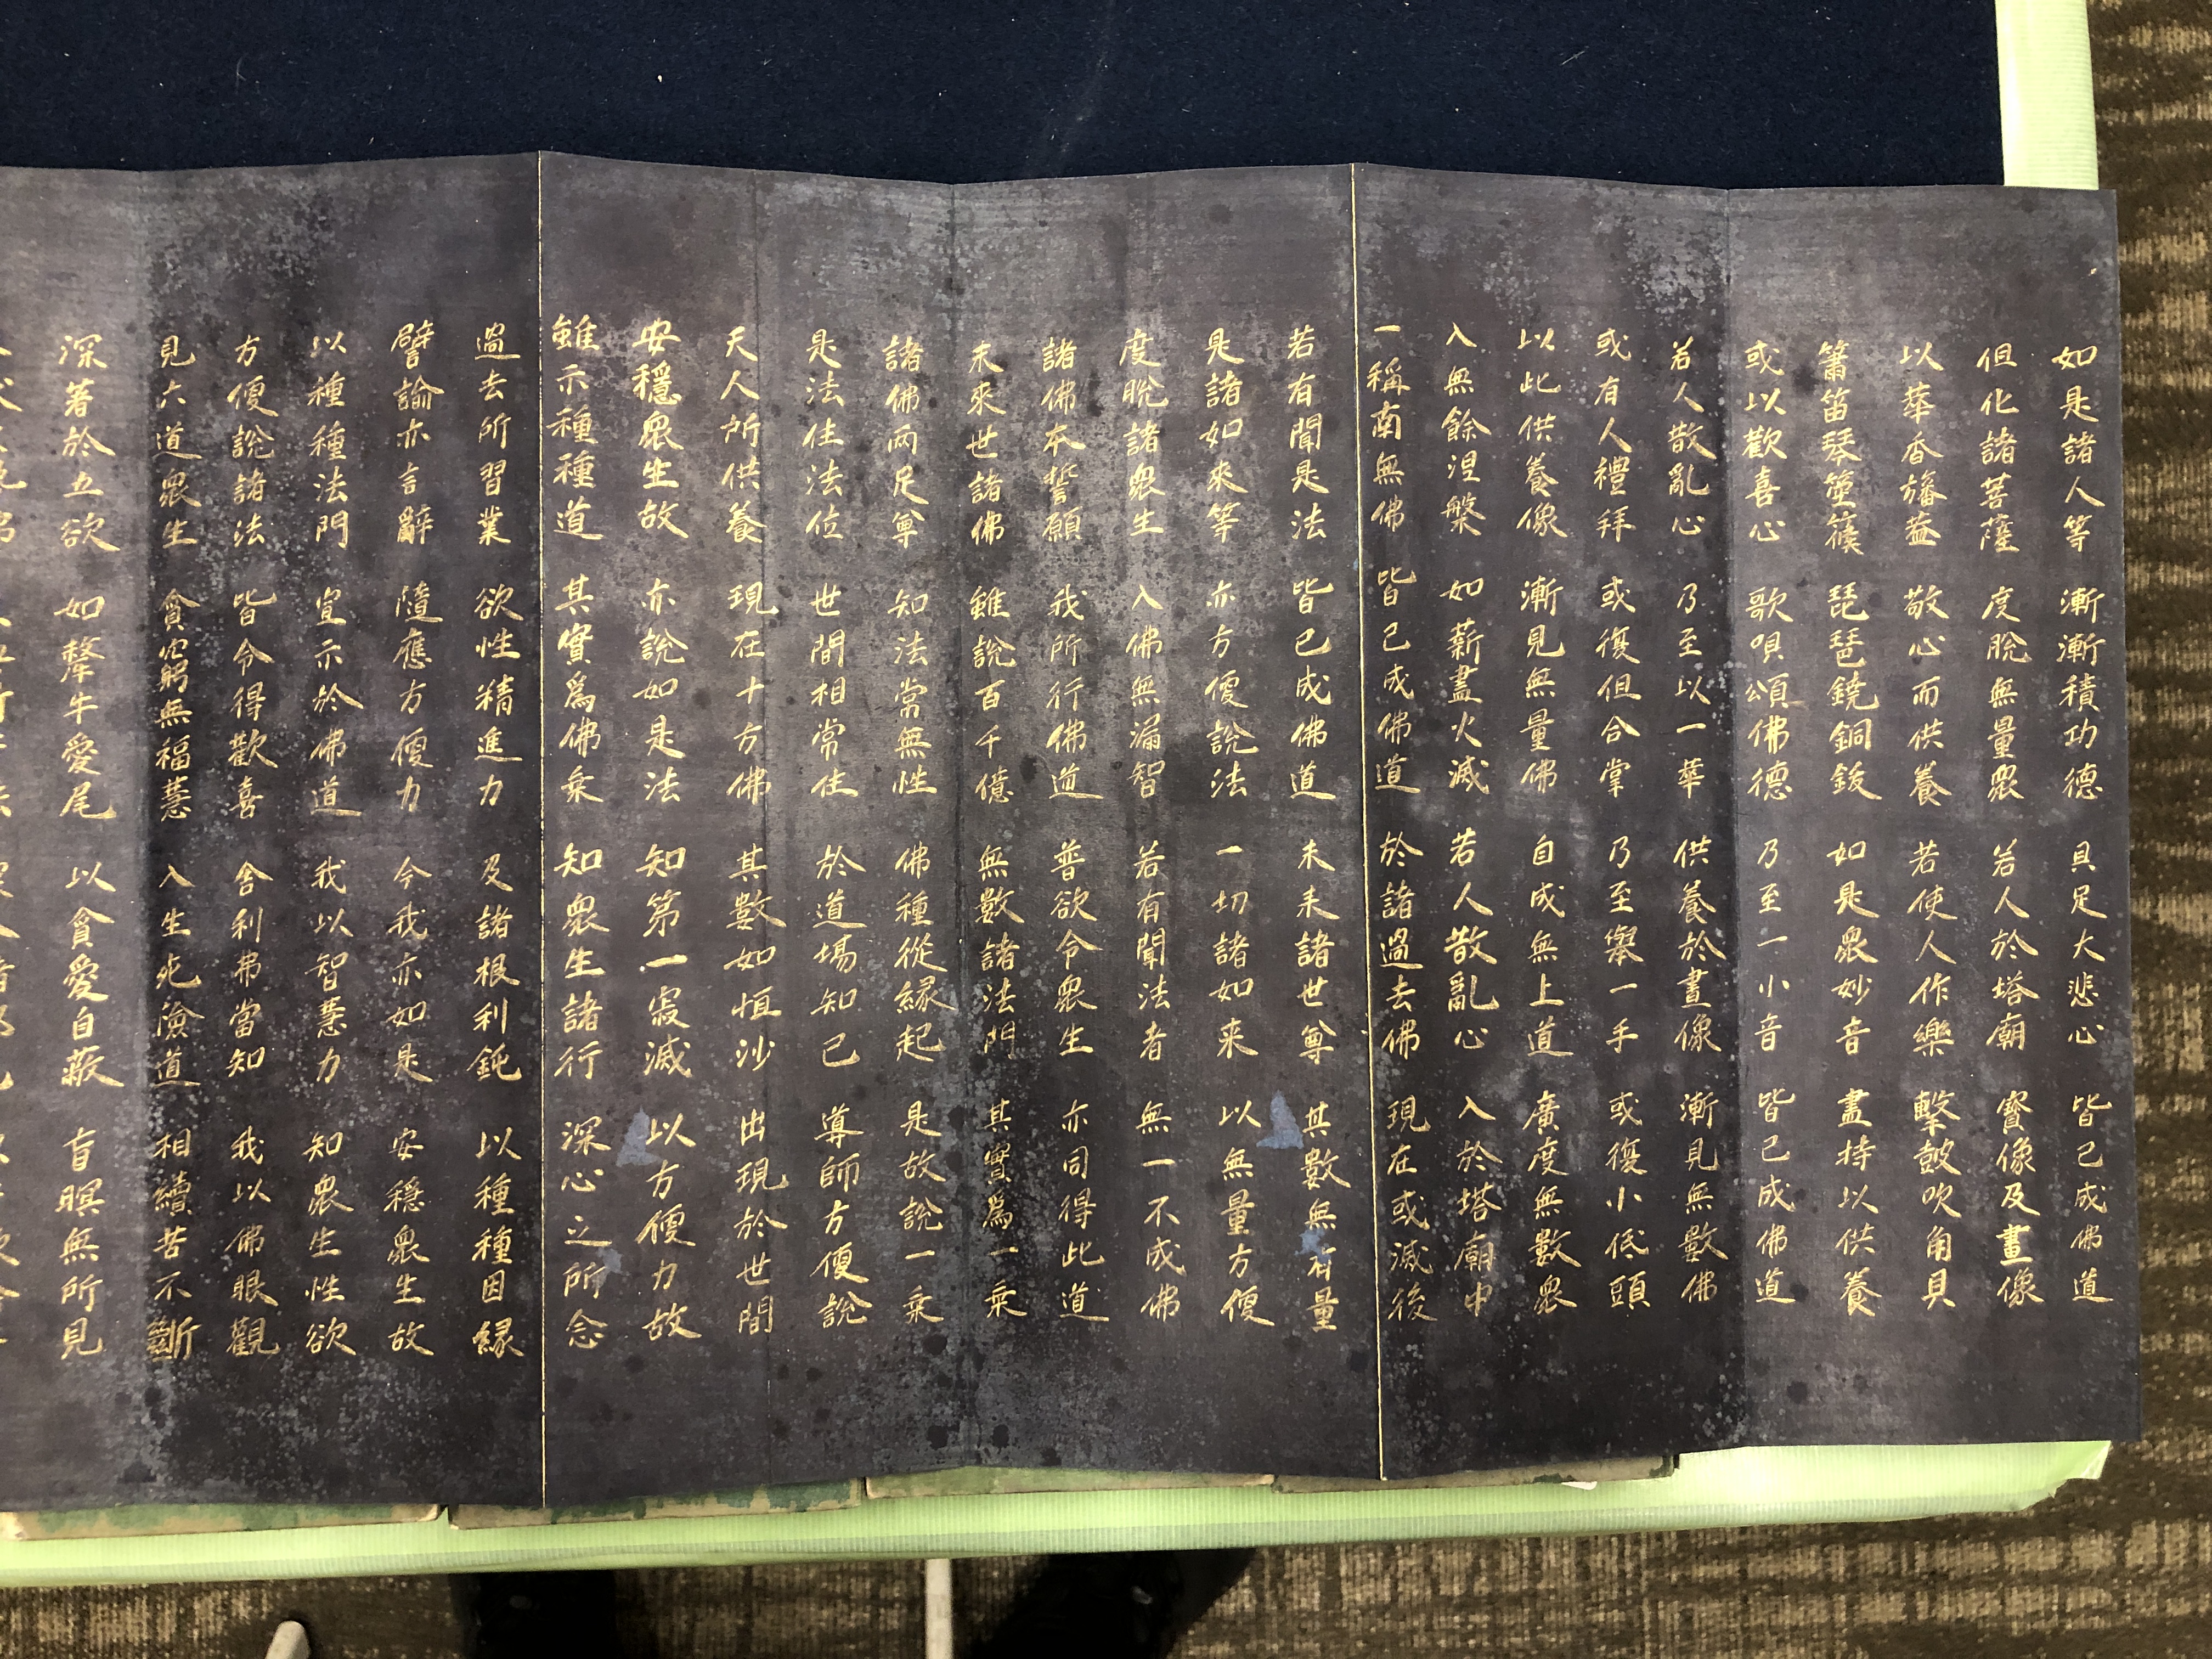 如是諸人等 漸漸積功德 具足大悲心 皆已成佛道
但化諸菩薩 度脫無量眾 若人於塔廟 寳像及畫像
以華香旛蓋 敬心而供養 若使人作樂 擊鼓吹角貝
簫笛琴箜篌 琵琶鐃銅鈸 如是眾妙音 盡持以供養
或以歡喜心 歌唄頌佛德 乃至一小音 皆已成佛道
若人散亂心 乃至以一華 供養於畫像 漸見無數佛
或有人禮拜 或復但合掌 乃至舉一手 或復小低頭
以此供養像 漸見無量佛 自成無上道 廣度無數眾
入無餘涅槃 如薪盡火滅 若人散亂心 入於塔廟中
一稱南無佛 皆已成佛道 於諸過去佛 現在或滅後
若有聞是法 皆已成佛道 未来諸世尊 其數無有量
是諸如來等 亦方便說法 一切諸如来 以無量方便
度脫諸眾生 入佛無漏智 若有聞法者 無一不成佛
諸佛本誓願 我所行佛道 普欲令眾生 亦同得此道
未來世諸佛 雖說百千億 無數諸法門 其實為一乗
諸佛兩足尊 知法常無性 佛種從緣起 是故說一乗
是法住法位 世間相常住 於道場知已 導師方便說
天人所供養 現在十方佛 其數如恒沙 出現於世間
安穩眾生故 亦說如是法 知第一寂滅 以方便力故
雖示種種道 其實為佛乗 知眾生諸行 深心之所念
過去所習業 欲性精進力 及諸根利鈍 以種種因緣
譬諭亦言辭 隨應方便力 今我亦如是 安穩眾生故
以種種法門 宣示於佛道 我以智慧力 知眾生性欲
方便說諸法 皆令得歡喜 舍利弗當知 我以佛眼觀
見六道眾生 貧窮無福慧 入生死險道 相續苦不斷
深著於五欲 如犛牛愛尾 以貪愛自蔽 盲瞑無所見